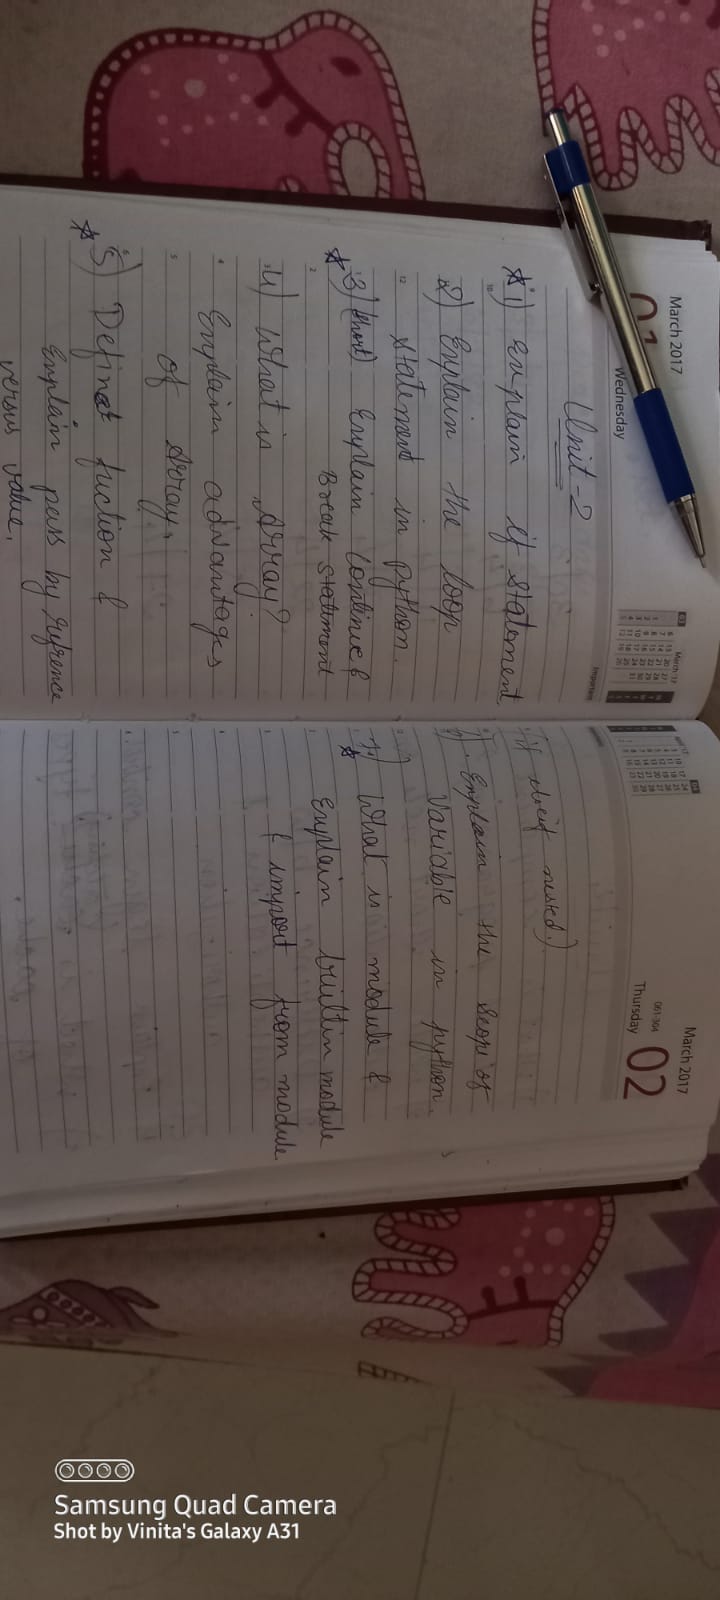 March 2017
Wednesday
Important
Unit-2
1) Explain if statement
2) Explain the loop
statement in python.
3) (short) Explain continue &
Break statement
4) What is Array?
Explain advantages
of Array.
5) Define fuction &
Explain pass by reference
versus value.
March 2017
02
061-304
Thursday
if elseif nested.)
Explain the scope of
Variable in python.
7) What is module &
Explain builtin module
& import from module
Samsung Quad Camera
Shot by Vinita's Galaxy A31